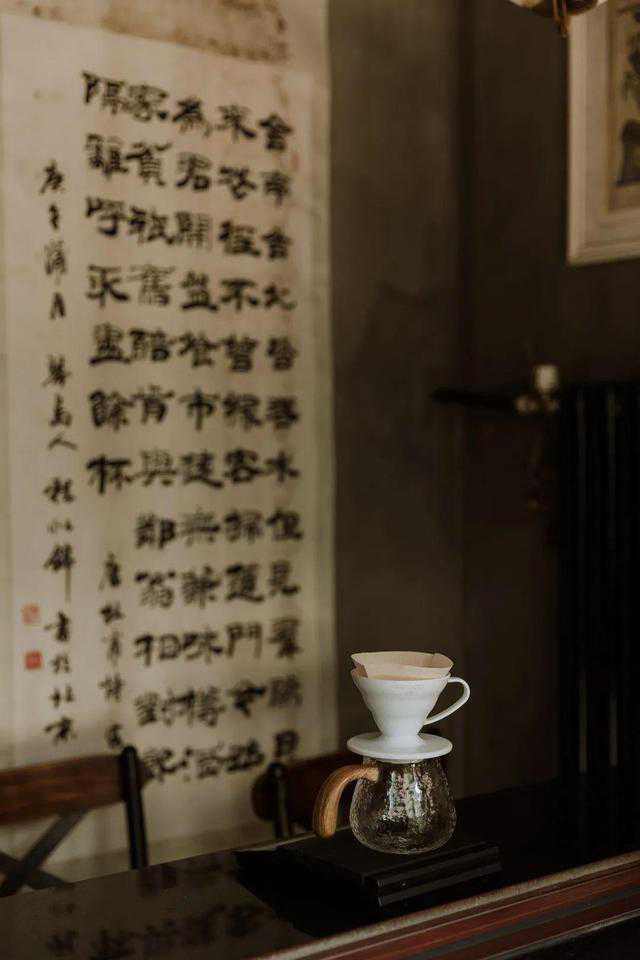 舍南舍北皆春水但見羣鷗日
來花徑不曾緣客掃蓬門今始
為君開盤飧市遠無兼味樽酒
家貧秪舊醅肯與鄰翁相對飲
隔離呼取盡餘杯
唐杜甫詩
庚午 月 人 書於北京